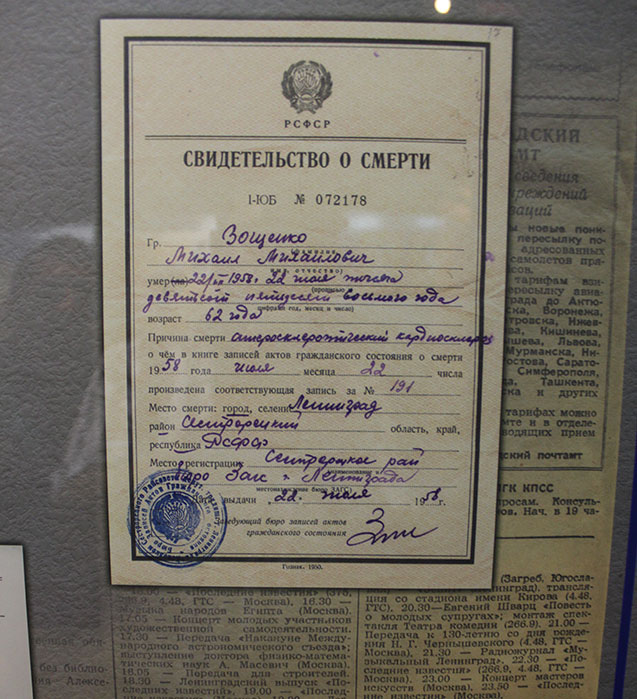 РСФСР
СВИДЕТЕЛЬСТВО О СМЕРТИ
I-ЮБ № 072178
Гр. Зощенко
Михаил Михайлович
умер(ла) 22/VII 1958 г. 22 июля тысяча
(прописью)
девятсот пятдесят восьмого года
цифрами год, месяц и число)
возраст 62 года
Причина смерти атеросклеротический кардиосклероз
о чём в книге записей актов гражданского состояния о смерти
1958 года июля месяца 22 числа
произведена соответствующая запись за № 191
Место смерти: город, селение Ленинград
район Сестрорецкий область, край,
республика РСФСР
Место регистрации: Сестрорецкое рай
бюро Загс г. Ленинграда
местонахождение бюро ЗАГС
Дата выдачи „22" июля 1958.
Заведующий бюро записей актов
гражданского состояния
Гознак. 1950.
АДСКИЙ
МТ
сведения
реждений
заций
ы новые пони
пересылку по-
адресованных
самолетов пря-
тарифам взи-
ересылку авиа-
града до Актю-
ска, Воронежа,
тровска, Ниже-
ва, Кишинева,
ышева, Львова,
Мурманска, Ни-
остова, Сарато-
Симферополя,
да, Ташкента,
ска и других
тарифах можно
мте и в отделе-
водящих прием
дский почтамт
ГК КПСС
просам. Консуль-
ов. Нач. в 19 ча-
16.00 — «Последние известия» (375,
266.9, 4.48, ГТС — Москва). 16.30 —
Музыка народов Египта (Москва).
17.05 — Концерт молодых участников
художественной самодеятельности.
17.30 — Передача «Накануне Между-
народного астрономического съезда»,
выступление доктора физико-матема-
тических наук А. Масевич (Москва).
18.00 — Передача для строителей.
18.30 — Ленинградский выпуск «Пос-
(Загреб, Югосла-
Ленинград), трансля-
ция со стадиона имени Кирова (4.48,
ГТС). 20.30—Евгений Шварц «Повесть
о молодых супругах»; монтаж спек-
такля Театра комедии (266.9). 21.00 —
Передача к 130-летию со дня рожде-
ния Н. Г. Чернышевского (4.48, ГТС
— Москва). 21.30 — Радиожурнал «Му-
зыкальный Ленинград». 22.30 — «По-
следние известия» (266.9, 4.48, ГТС
— Москва). 23.00 — Концерт мастеров
искусств (Москва). 23.50 — «Послед-
ние известия» (Москва).
без библио-
на «Алексе-